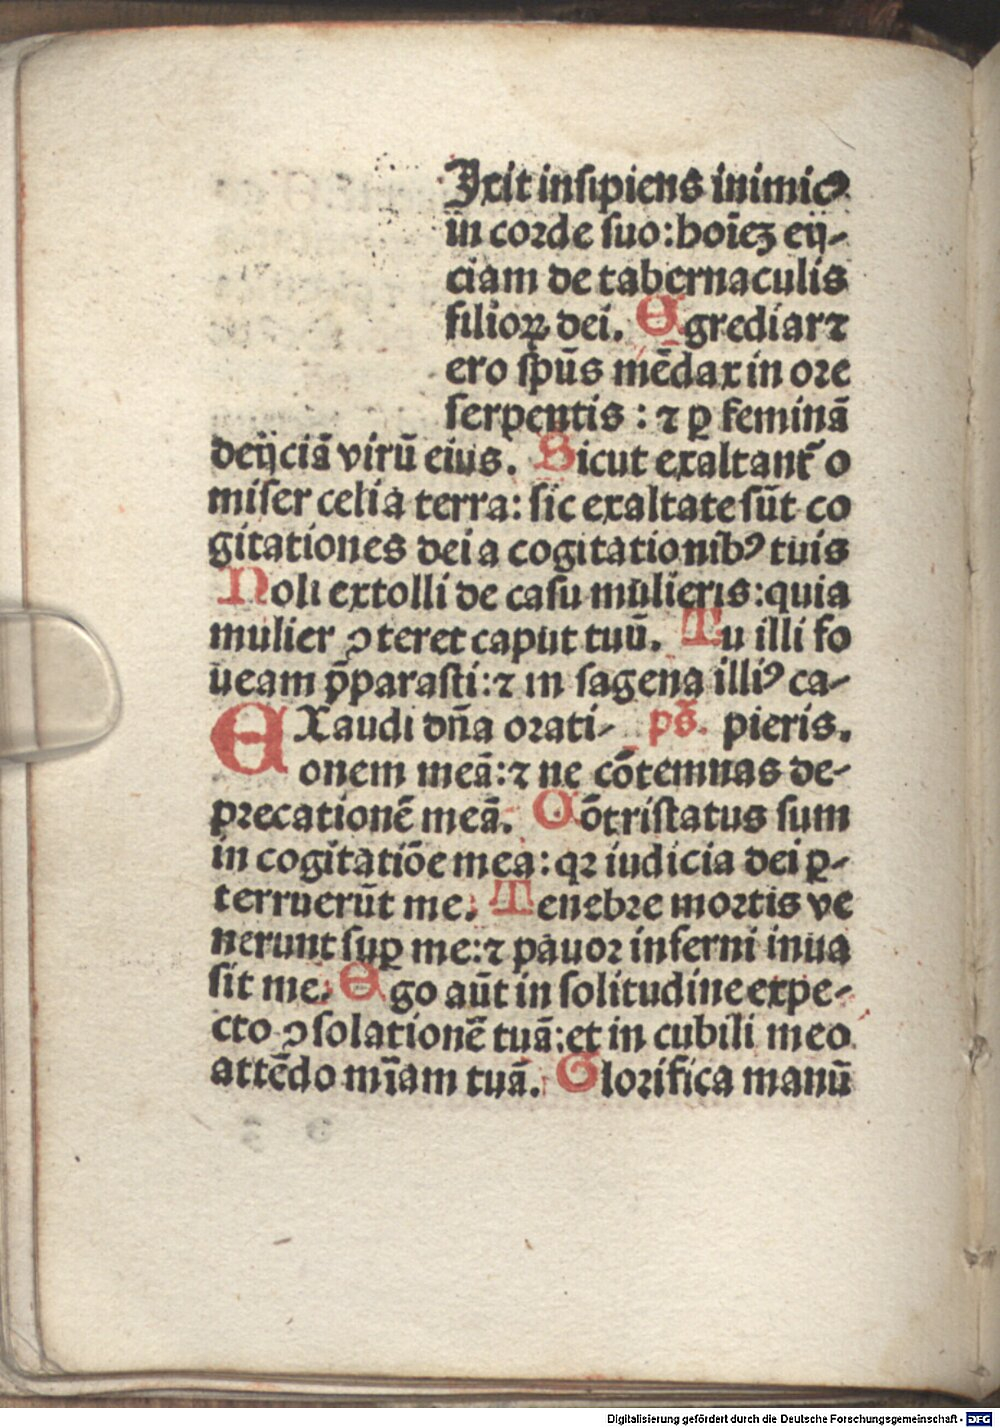 Ixit insipiens inimicꝰ
in corde suo: hoīeꝫ eij-
ciam de tabernaculis
filioꝝ dei. Egrediar ⁊
ero sp̄us mēdax in ore
serpentis : ⁊ ꝑ feminā
deijciā virū eius. Sicut exaltant̄ o
miser celi a terra: sic exaltate sūt co
gitationes dei a cogitationibꝰ tuis
Noli extolli de casu mulieris: quia
mulier ꝯteret caput tuū. Tu illi fo
ueam p̄parasti: ⁊ in sagena illiꝰ ca-
EXaudi dn̄a orati- ps̄. pieris.
onem meā: ⁊ ne cōtemnas de-
precationē meā. Cōtristatus sum
in cogitatiōe mea: qꝛ iudicia dei ꝑ-
terruerūt me. Tenebre mortis ve
nerunt suꝑ me: ⁊ pauor inferni inua
sit me. Ego aūt in solitudine expe-
cto ꝯsolationē tuā: et in cubili meo
attēdo mīam tuā. Glorifica manū
Digitalisierung gefördert durch die Deutsche Forschungsgemeinschaft - DFG